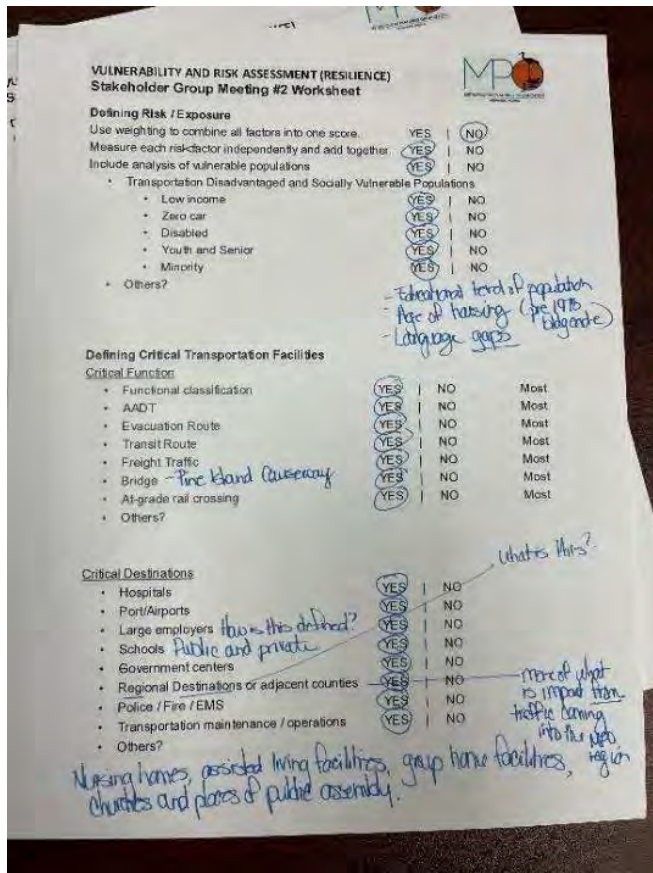 VULNERABILITY AND RISK ASSESSMENT (RESILIENCE)
Stakeholder Group Meeting #2 Worksheet
MPO
Defining Risk / Exposure
Use weighting to combine all factors into one score. YES | NO
Measure each risk factor independently and add together. YES | NO
Include analysis of vulnerable populations YES | NO
• Transportation Disadvantaged and Socially Vulnerable Populations
• Low income YES | NO
• Zero car YES | NO
• Disabled YES | NO
• Youth and Senior YES | NO
• Minority YES | NO
• Others?
- Educational level of population
- Age of housing (pre 1978
bldg code)
- Language gaps
Defining Critical Transportation Facilities
Critical Function
• Functional classification YES | NO Most
• AADT YES | NO Most
• Evacuation Route YES | NO Most
• Transit Route YES | NO Most
• Freight Traffic YES | NO Most
• Bridge - Pine Island Causeway YES | NO Most
• At-grade rail crossing YES | NO Most
• Others?
what is this?
Critical Destinations
• Hospitals YES | NO
• Port/Airports YES | NO
• Large employers How is this defined? YES | NO
• Schools Public and private YES | NO
• Government centers YES | NO
• Regional Destinations or adjacent counties YES | NO
• Police / Fire / EMS YES | NO
• Transportation maintenance / operations YES | NO
• Others?
more of what
is impact from
traffic coming
into the MPO
region
Nursing homes, assisted living facilities, group home facilities,
churches and places of public assembly.